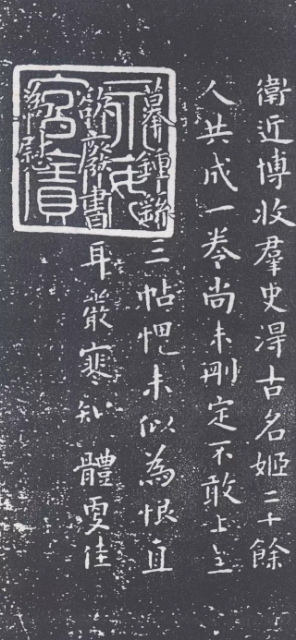 衛近博收羣史淂古名姬二十餘
人共成一卷尚未刪定不敢上呈
摹鍾繇三帖未似為恨直
欲廢書耳嚴寒知體佳
為慰